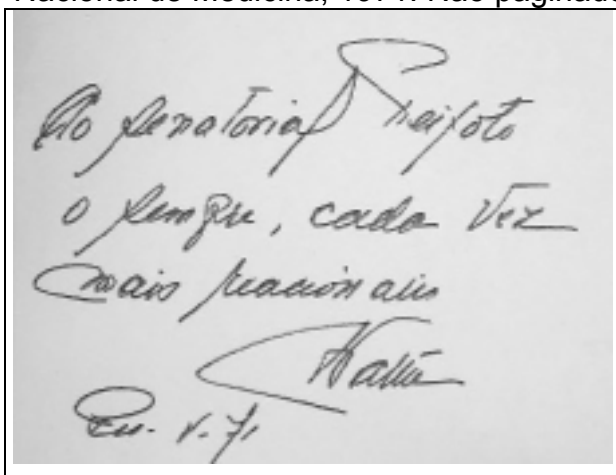 Nacional de Medicina, 1971. Não paginado
Ao senatorial Peixoto
o sempre, cada vez
mais reacionario
V.71